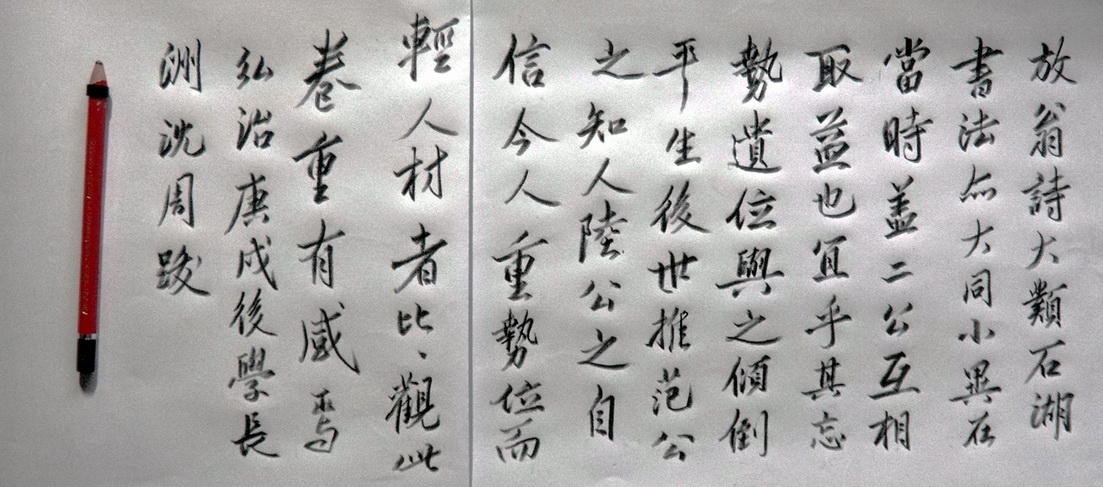 放翁詩大類石湖
書法亦大同小異在
當時蓋二公互相
取益也宜乎其忘
勢遺位與之傾倒
平生後世推范公
之知人陸公之自
信今人重勢位而
輕人材者比比觀此
卷重有感焉
弘治庚戌後學長
洲沈周跋